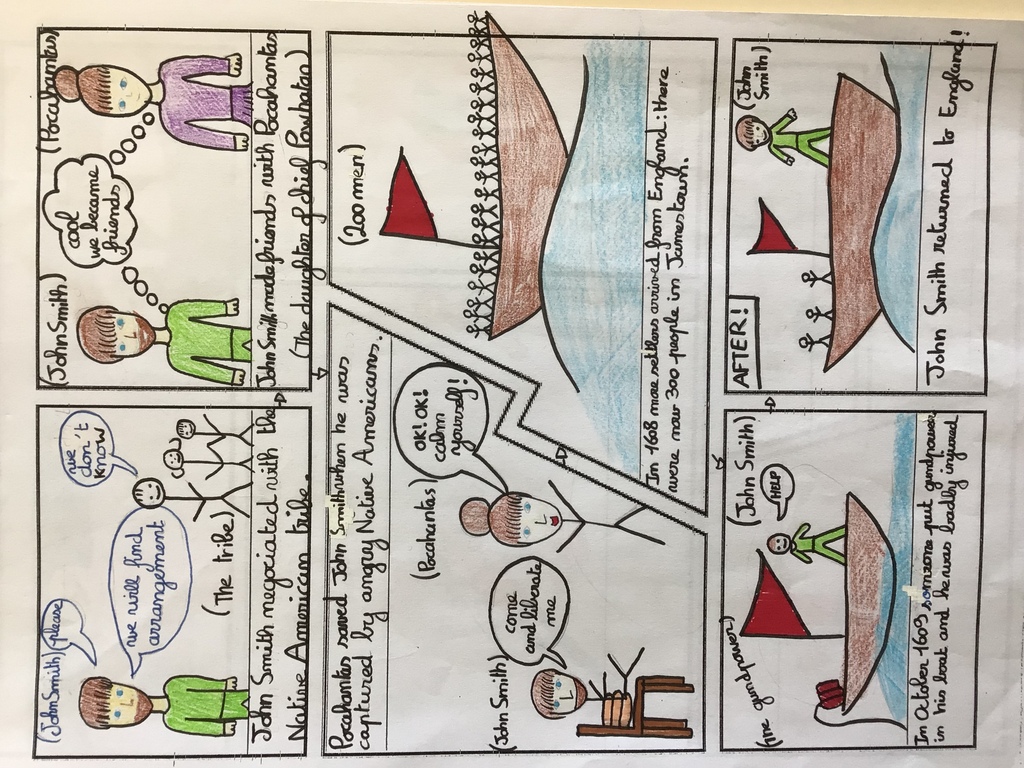 (John Smith)
please
we will find
arrangement
we
don't
know
(The tribe)
John Smith negociated with the
Native American tribe.
(John Smith)
(Pocahantas)
cool
we became
friends
John Smith made friends with Pocahantas
(The daughter of chief Powhatan)
Pocahantas saved John Smith when he was
captured by angry Native Americans.
(John Smith)
come
and liberate
me
(Pocahantas)
OK! OK!
calm
yourself!
(200 men)
In 1608 more settlers arrived from England: there
were now 300 people in Jamestown.
(the gundpower)
(John Smith)
HELP
In October 1609 someone put gundpower
in his boat and he was badly injured
AFTER!
(John
Smith)
John Smith returned to England!